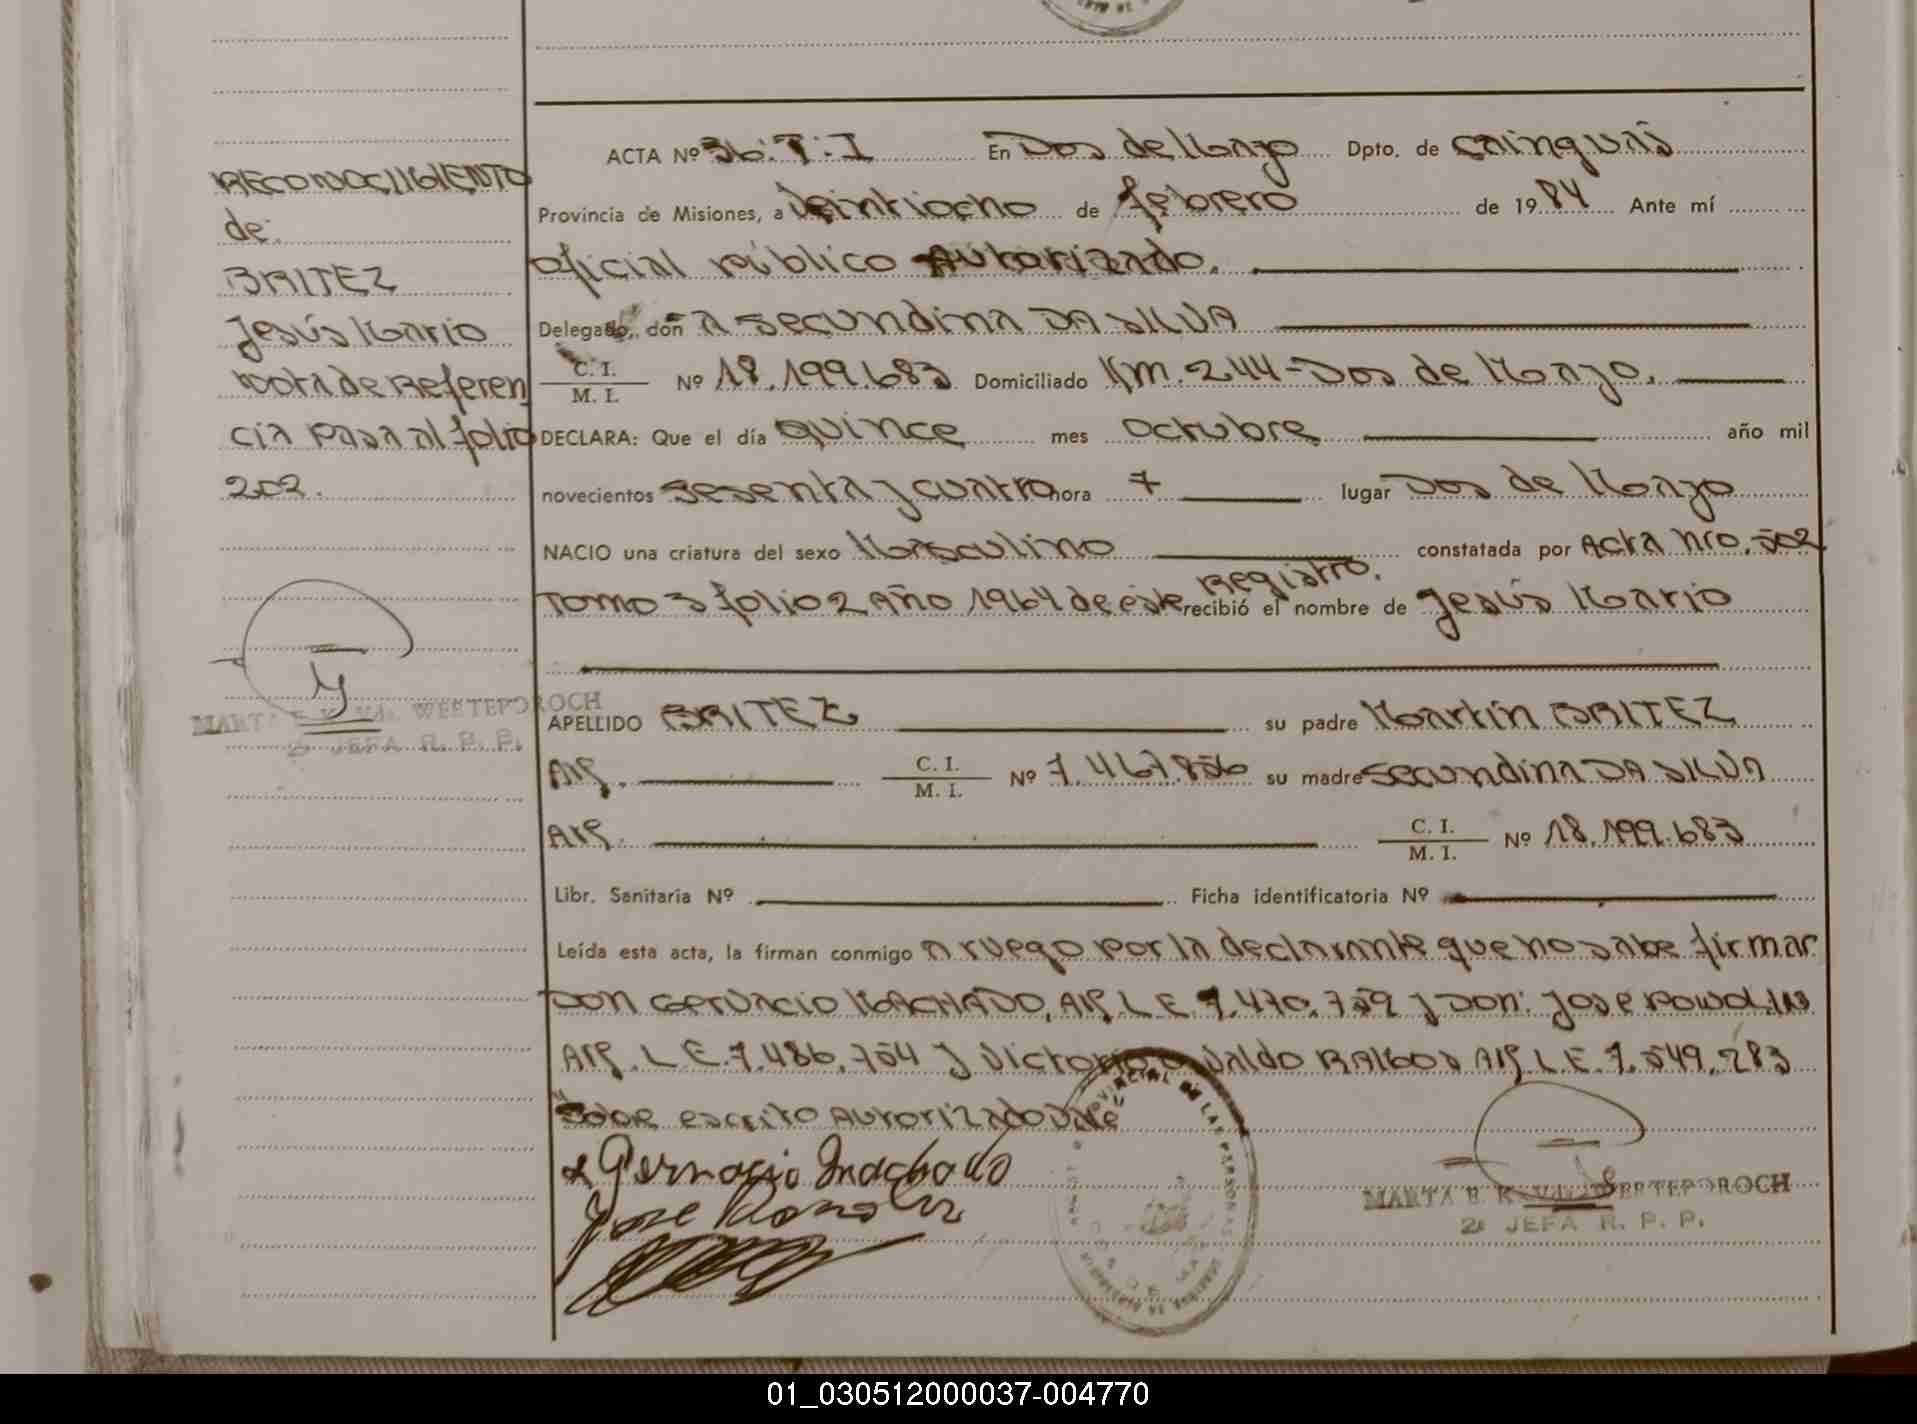 RECONOCIMIENTO
de:
BRITEZ
Jesús Mario
Nota de Referen
cia Pasa al folio
202.
MARTA E. K. Vda. WERTEPOROCH
2a JEFA R. P. P.
ACTA Nº 36. T. I En Dos de Mayo Dpto. de Cainguás
Provincia de Misiones, a Veintiocho de febrero de 1984 Ante mí
oficial público Autorizado.
Delegado, don a Secundina DA SILVA
C. I.
M. I. Nº 18.199.683 Domiciliado Km. 244-Dos de Mayo.
DECLARA: Que el día quince mes octubre año mil
novecientos sesenta y cuatro hora 7 lugar Dos de Mayo
NACIO una criatura del sexo Masculino constatada por Acta Nro. 502
Tomo 3 folio 2 Año 1964 de éste Registro. recibió el nombre de Jesús Mario
APELLIDO BRITEZ su padre Martín BRITEZ
Arg. C. I.
M. I. Nº 7.467.856 su madre Secundina DA SILVA
Arg. C. I.
M. I. Nº 18.199.683
Libr. Sanitaria Nº Ficha identificatoria Nº
Leída esta acta, la firman conmigo a ruego por la declarante que no sabe firmar
Don Gervacio MACHADO, Arg. L.E. 7.470.759 y Don: Jose
Arg. L.E. 7.486.754 y Victorio Osvaldo RAMOS Arg. L.E. 7.549.283
Sobre escrito Autorizado Vale
Gervacio Machado
Jose
PROVINCIAL DE LAS PERSONAS
MARTA E. K. Vda. WERTEPOROCH
2a JEFA R. P. P.
01_030512000037-004770